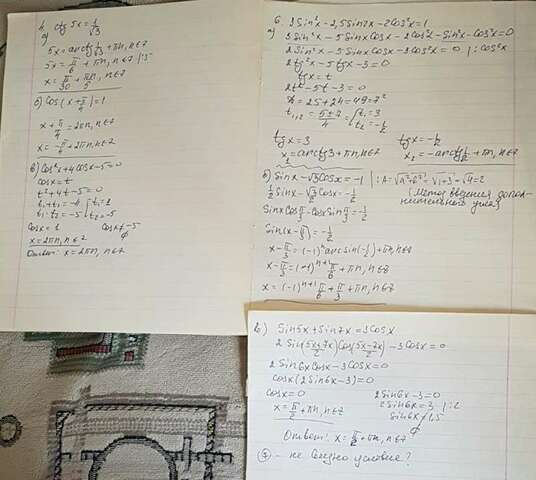 4.
а) ctg 5x = 1/√3
5x = arcctg 1/√3 + πn, n∈Z
5x = π/6 + πn, n∈Z |:5
x = π/30 + πn/5, n∈Z
б) cos(x + π/4) = 1
x + π/4 = 2πn, n∈Z
x = -π/4 + 2πn, n∈Z
в) cos²x + 4cosx - 5 = 0
cosx = t
t² + 4t - 5 = 0
t₁ + t₂ = -4 t₁ = 1
t₁ · t₂ = -5 t₂ = -5
cosx = 1 cosx ≠ -5
x = 2πn, n∈Z ∅
Ответ: x = 2πn, n∈Z
6.
а) 3Sin²x - 2,5Sin2x - 2cos²x = 1
3Sin²x - 5Sinxcosx - 2cos²x - Sin²x - cos²x = 0
2Sin²x - 5Sinxcosx - 3cos²x = 0 |:cos²x
2tg²x - 5tgx - 3 = 0
tgx = t
2t² - 5t - 3 = 0
D = 25 + 24 = 49 = 7²
t₁,₂ = (5 ± 7)/4 = t₁ = 3
t₂ = -1/2
tgx = 3 tgx = -1/2
x₁ = arctg3 + πn, n∈Z x₂ = -arctg 1/2 + πn, n∈Z
б) Sinx - √3cosx = -1 |:A = √(a²+b²) = √(1+3) = √4 = 2
1/2 Sinx - √3/2 cosx = -1/2 (Метод введения дополнительного угла)
Sinx cos π/3 - cosx Sin π/3 = -1/2
Sin(x - π/3) = -1/2
x - π/3 = (-1)ⁿ arcsin(-1/2) + πn, n∈Z
x - π/3 = (-1)ⁿ⁺¹ π/6 + πn, n∈Z
x = (-1)ⁿ⁺¹ π/6 + π/3 + πn, n∈Z
в) Sin5x + Sin7x = 3cosx
2Sin((5x+7x)/2) cos((5x-7x)/2) - 3cosx = 0
2Sin6x cosx - 3cosx = 0
cosx(2Sin6x - 3) = 0
cosx = 0 2Sin6x - 3 = 0
x = π/2 + πn, n∈Z 2Sin6x = 3 |:2
Sin6x ≠ 1,5
∅
Ответ: x = π/2 + πn, n∈Z
⑦ - не видно условие?